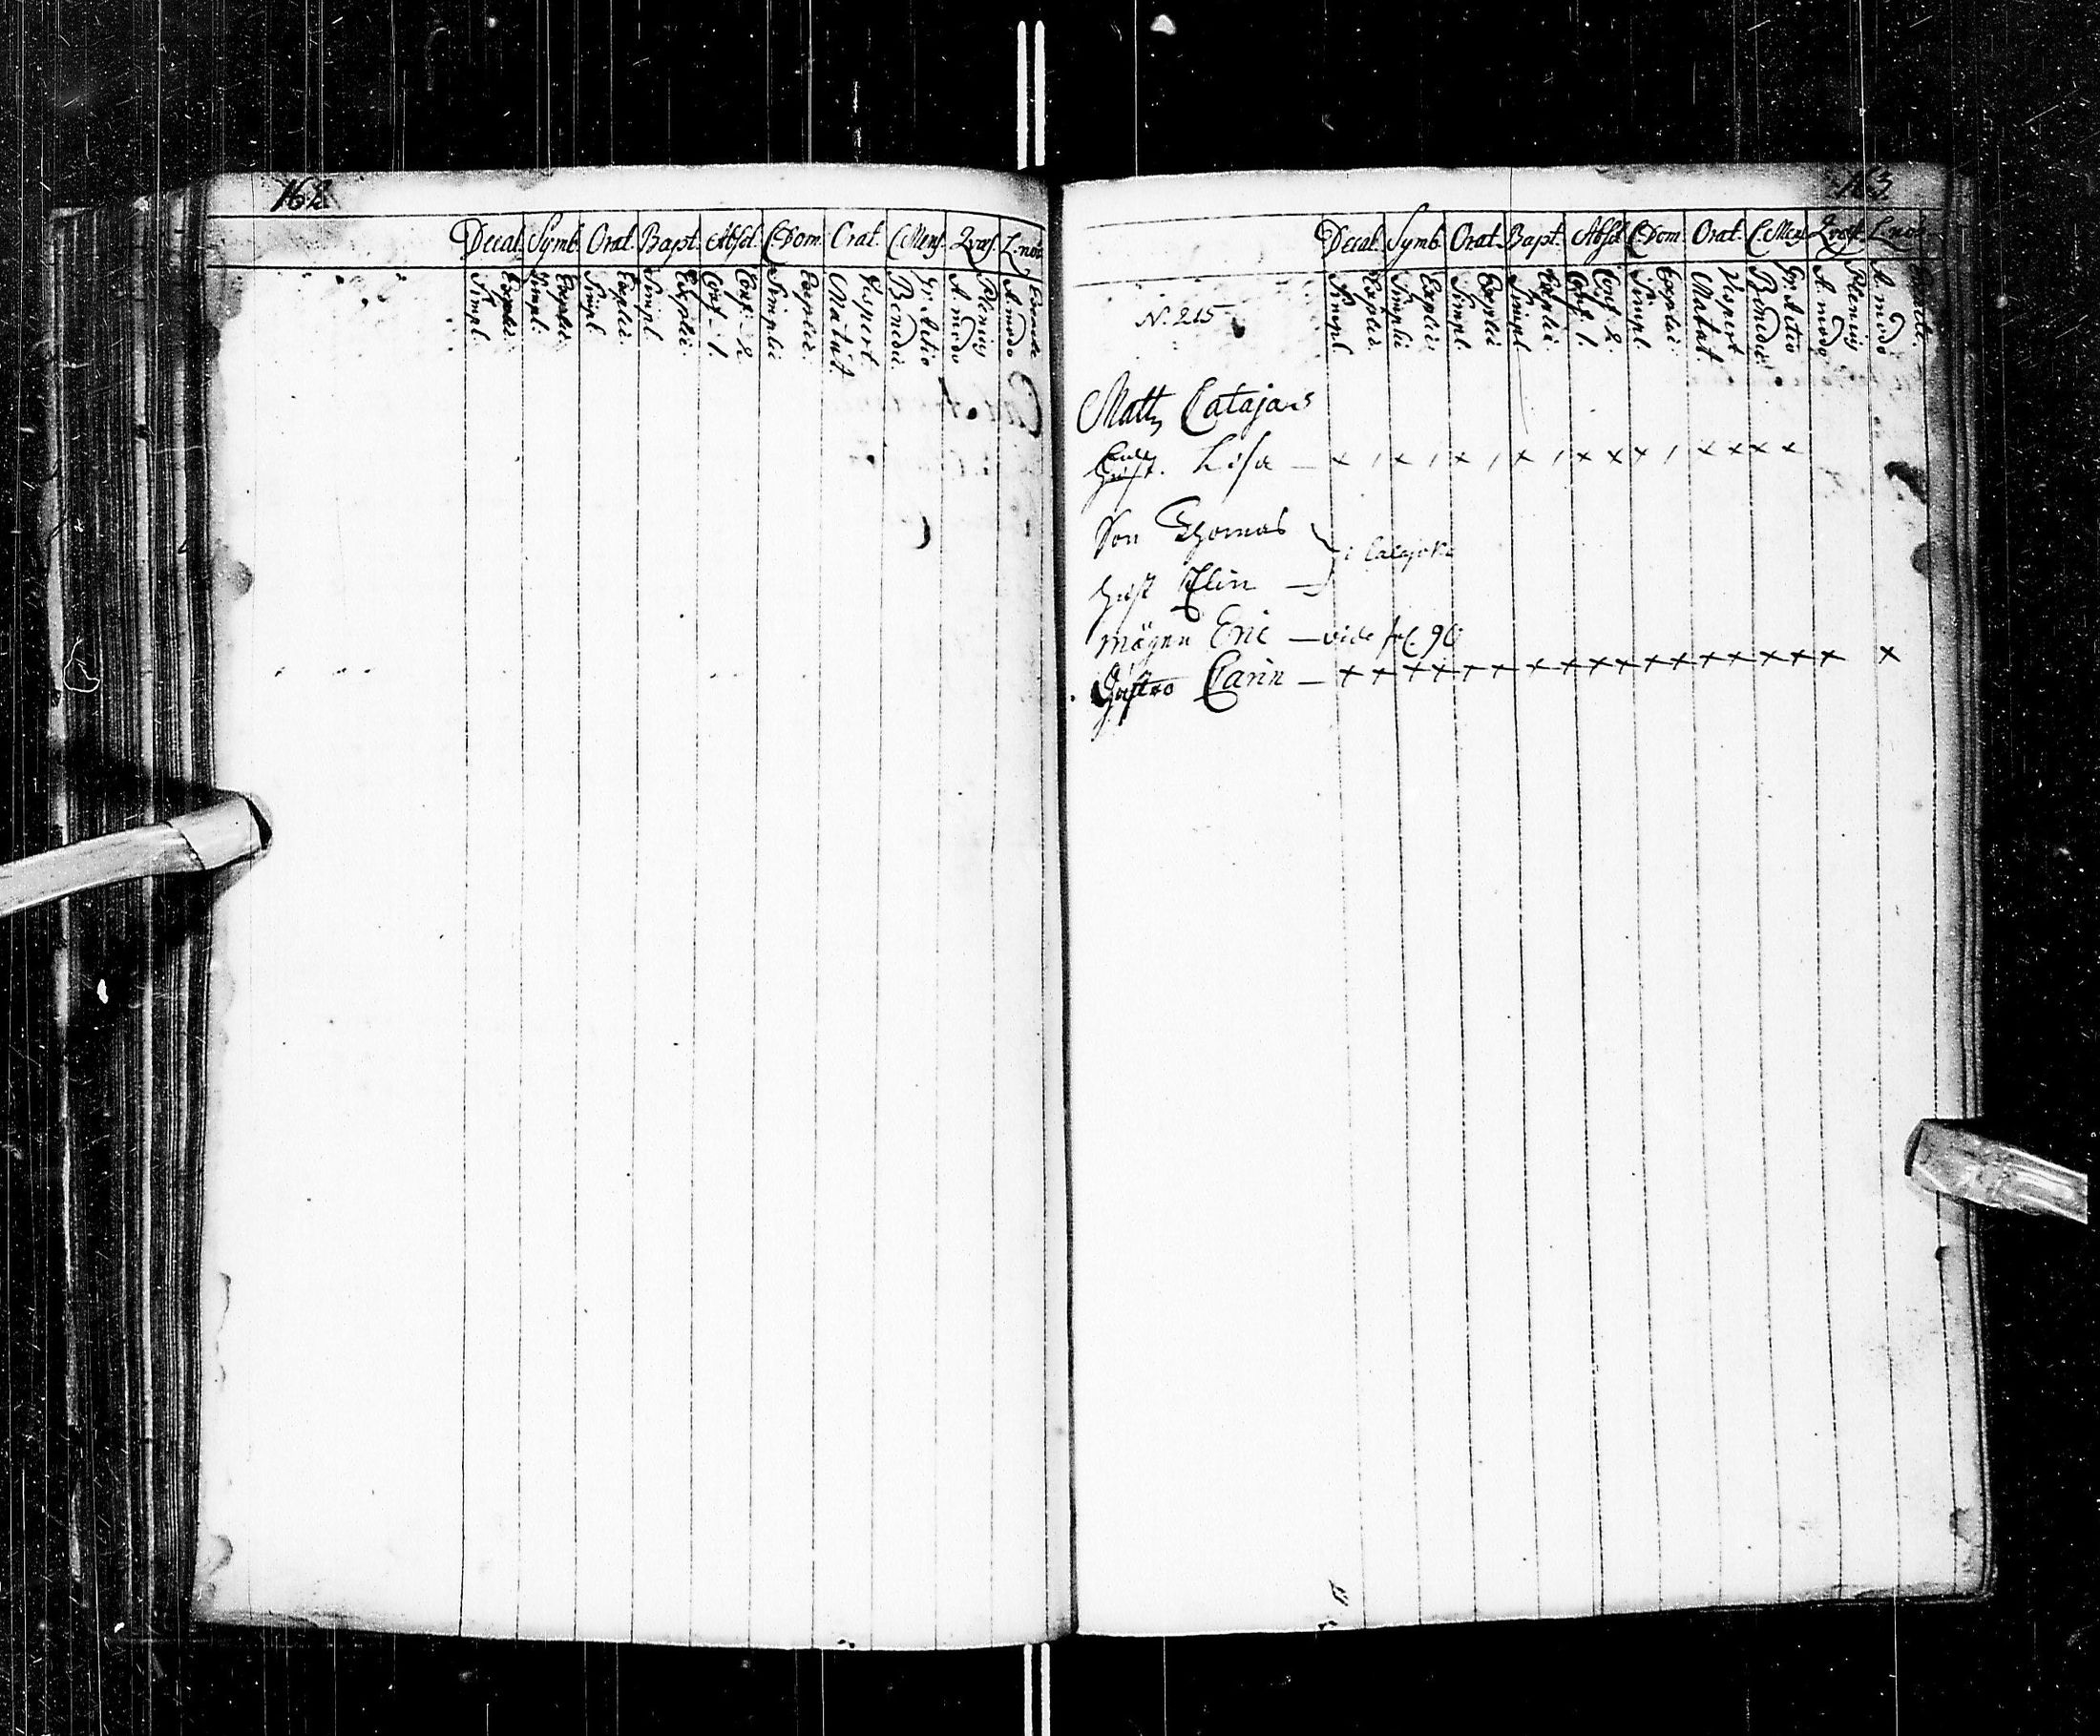 162
Decal. Symb. Orat. Bapt. Absol. C. Dom. Orat. C. Mens. Qvæst. L. nov.
Simpl. Explic. Simpl. Explic. Simpl. Explic. Simpl. Explic. Conf. 1. Conf. 2 Simplic Explic. Matut. Vespert. Benedic. Gr. Actio A. modo Plenius A. modo Exacte
163
Decal. Symb. Orat. Bapt. Absol. C. Dom. Orat. C. Mens. Qvæst. L. nov.
N. 215
Simpl. Explic. Simpli Explic. Simpl. Explic Simpl. Explic. Conf. 1. Conf. 2. Simpl. Explic. Matut. Vespert. Benedic. Gr. Actio A. modo Plenius A. modo Exacte.
Matts Catajars
Enk
Hust. Lisa — x / x / x / x / x x x / x x x x
Son Thomas
i Calajoki
Hust Elin —
mågen Eric — vide fol. 90
Hustro Carin — x x x x x x x x x x x x x x x x x x